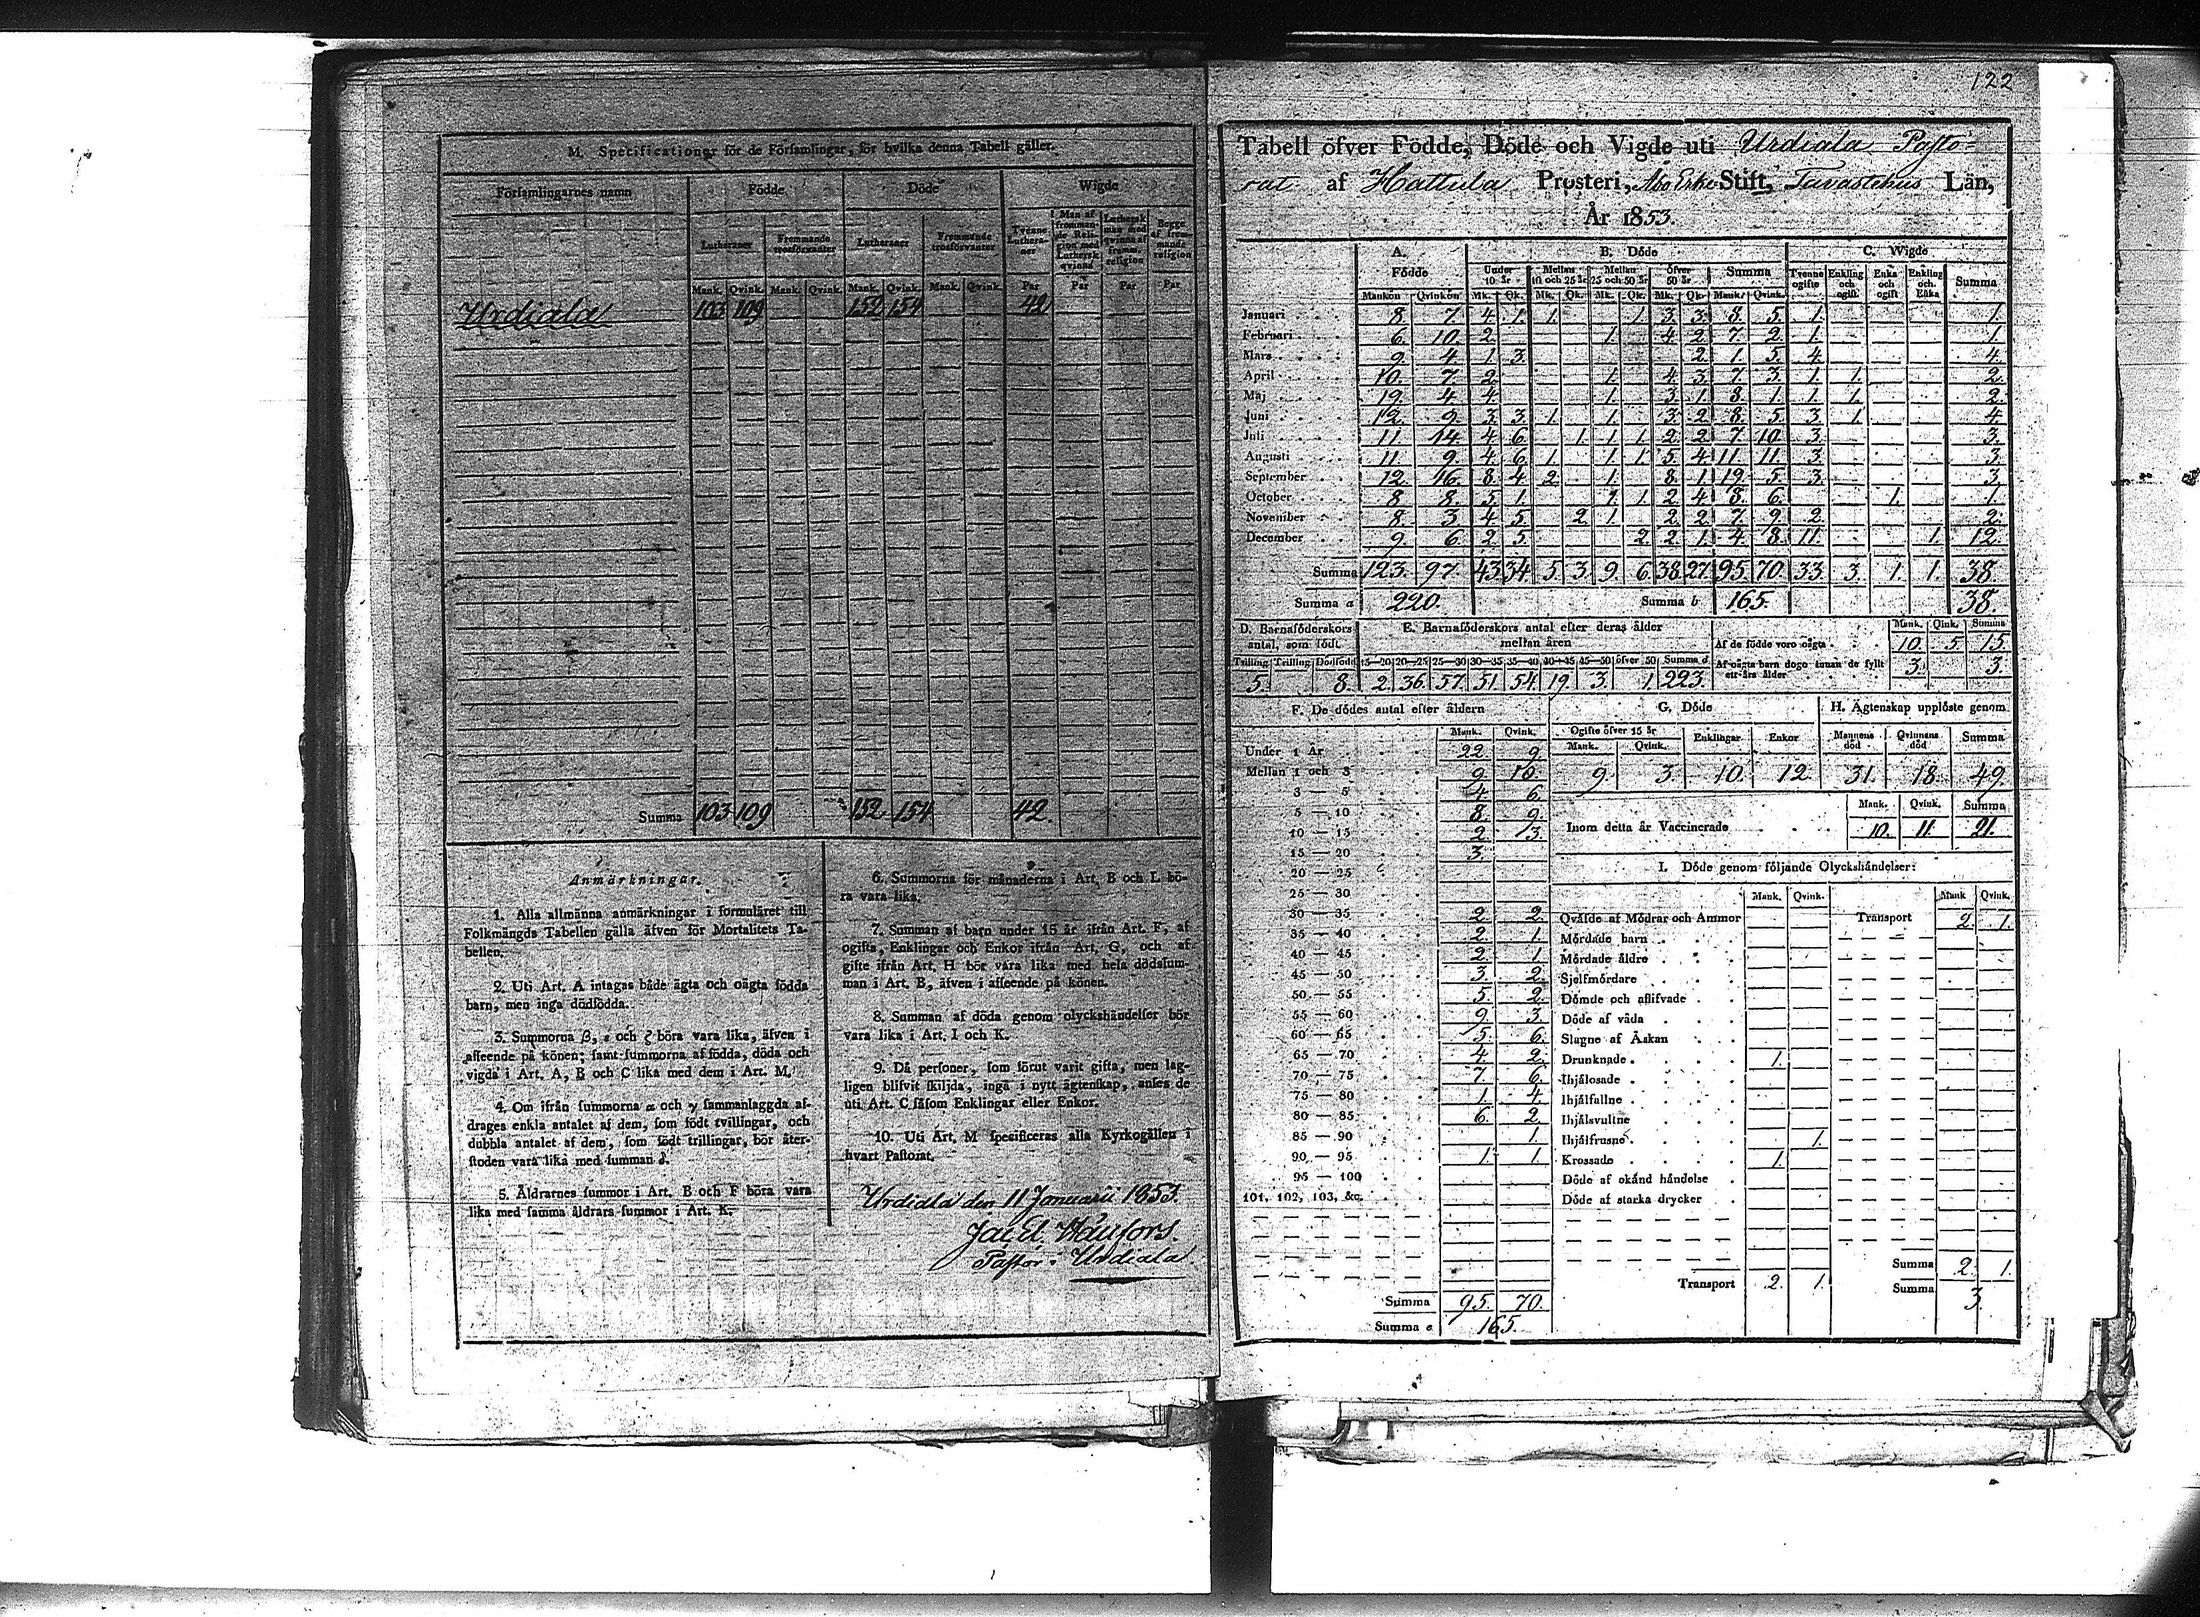 M. Specificationer för de Församlingar, för hvilka denna Tabell gäller.
Församlingarnes namn Födde Döde Wigde
Lutheraner Fremmande trosförvanter Lutheraner Fremmande trosförvanter Tvenne Lutheraner Man af fremmande Religion med Luthersk qvinna Luthersk man med qvinna af fremm. religion Begge af fremmande religion
Mank. Qvink. Mank. Qvink. Mank. Qvink. Mank. Qvink. Par Par Par Par
Urdiala 103 109 152 154 42
Summa 103 109 152 154 42
Anmärkningar.
1. Alla allmänna anmärkningar i formuläret till
Folkmängds Tabellen gälla äfven för Mortalitets Ta-
bellen.
2. Uti Art. A intagas både ägta och oägta födda
barn, men inga dödfödda.
3. Summorna β, ε och ζ böra vara lika, äfven i
afseende på könen; samt summorna af födda, döda och
vigda i Art. A, B och C lika med dem i Art. M.
4. Om ifrån summorna α och γ sammanlaggda af-
drages enkla antalet af dem, som födt tvillingar, och
dubbla antalet af dem, som födt trillingar, bör åter-
stoden vara lika med summan δ.
5. Åldrarnes summor i Art. B och F böra vara
lika med samma åldrars summor i Art. K.
6. Summorna för månaderna i Art. B och L bö-
ra vara lika.
7. Summan af barn under 15 år ifrån Art. F, af
ogifta, Enklingar och Enkor ifrån Art. G, och af
gifte ifrån Art. H bör vara lika med hela dödssum-
man i Art. B, äfven i afseende på könen.
8. Summan af döda genom olyckshändelser bör
vara lika i Art. I och K.
9. Då personer, som förut varit gifta, men lag-
ligen blifvit skiljda, ingå i nytt ägtenskap, anses de
uti Art. C såsom Enklingar eller Enkor.
10. Uti Art. M specificeras alla Kyrkogällen i
hvart Pastorat.
Urdiala den 11 Januarii 1853.
Pastor i Urdiala
122
Tabell öfver Födde, Döde och Vigde uti Urdiala Pasto-
rat af Hattula Prosteri, Åbo Erke Stift, Tavastehus Län,
År 1853.
A. Födde B. Döde C. Wigde
Under 10 år Mellan 10 och 25 år Mellan 25 och 50 år Öfver 50 år Summa Tvenne ogifte Enkling och ogift Enka och ogift Enkling och Enka Summa
Mankön Qvinkön Mk. Qk. Mk. Qk. Mk. Qk. Mk. Qk. Mank. Qvink.
Januari 8. 7. 4. 1. 1. 1. 3. 3. 8. 5. 1. 1.
Februari 6. 10. 2. 1. 4. 2. 7. 2. 1. 1.
Mars 9. 4. 1. 3. 2. 1. 5. 4. 4.
April 10. 7. 2. 1. 4. 3. 7. 3. 1. 1. 2.
Maj 19. 4. 4. 1. 3. 1. 8. 1. 1. 1. 2.
Juni 12. 9. 3. 3. 1. 1. 3. 2. 8. 5. 3. 1. 4.
Juli 11. 14. 4. 6. 1. 1. 1. 2. 2. 7. 10. 3. 3.
Augusti 11. 9. 4. 6. 1. 1. 1. 5. 4. 11. 11. 3. 3.
September 12. 16. 8. 4. 2. 1. 8. 1. 19. 5. 3. 3.
October 8. 8. 5. 1. 1. 1. 2. 4. 8. 6. 1. 1.
November 8. 3. 4. 5. 2. 1. 2. 2. 7. 9. 2. 2.
December 9. 6. 2. 5. 2. 2. 1. 4. 8. 11. 1. 12.
Summa 123. 97. 43. 34. 5. 3. 9. 6. 38. 27. 95. 70. 33. 3. 1. 1. 38.
Summa a 220. Summa b 165. 38.
D. Barnaföderskors antal, som födt E. Barnaföderskors antal efter deras ålder mellan åren
Mank. Qvink. Summa
Af de födde voro oägta 10. 5. 15.
Af oägta barn dogo innan de fyllt ett års ålder 3. 3.
Tvilling Trilling Dödfödt 15—20 20—25 25—30 30—35 35—40 40—45 45—50 öfver 50 Summa d
5. 8. 2. 36. 57. 51. 54. 19. 3. 1. 223.
F. De dödes antal efter åldern
Mank. Qvink.
Under 1 År 22. 9.
Mellan 1 och 3 9. 10.
3 — 5 4. 6.
5 — 10 8. 9.
10 — 15 2. 3.
15 — 20 3.
20 — 25
25 — 30
30 — 35 2. 2.
35 — 40 2. 1.
40 — 45 2. 1.
45 — 50 3. 2.
50 — 55 5. 2.
55 — 60 9. 3.
60 — 65 5. 6.
65 — 70 4. 2.
70 — 75 7. 6.
75 — 80 1. 4.
80 — 85 6. 2.
85 — 90 1.
90 — 95 1. 1.
95 — 100
101, 102, 103, &c.
Summa 95. 70.
Summa e 165.
G. Döde H. Ägtenskap upplöste genom
Ogifte öfver 15 år Enklingar Enkor Mannens död Qvinnans död Summa
Mank. Qvink.
9. 3. 10. 12. 31. 18. 49.
Mank. Qvink. Summa
Inom detta år Vaccinerade 10. 11. 21.
I. Döde genom följande Olyckshändelser:
Mank. Qvink. Mank. Qvink.
Qväfde af Mödrar och Ammor Transport 2. 1.
Mördade barn
Mördade äldre
Sjelfmördare
Dömde och aflifvade
Döde af våda
Slagne af Åskan
Drunknade 1.
Ihjälosade
Ihjälfallne
Ihjälsvultne
Ihjälfrusne 1.
Krossade 1.
Döde af okänd händelse
Döde af starka drycker
Summa 2. 1.
Transport 2. 1. Summa 3.